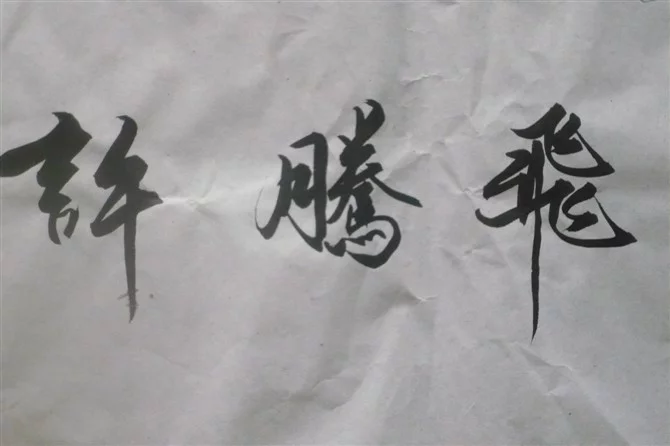 許騰飛